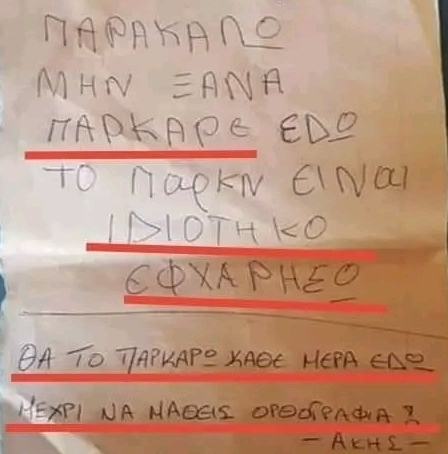 ΠΑΡΑΚΑΛΩ
ΜΗΝ ΞΑΝΑ
ΠΑΡΚΑΡΕ ΕΔΩ
ΤΟ Παρκν ΕΙΝαι
ΙΔΙΟΤΗΚΟ
ΕΦΧΑΡΗΣΟ
ΘΑ ΤΟ ΠΑΡΚΑΡΩ ΚΑΘΕ ΜΕΡΑ ΕΔΩ
ΜΕΧΡΙ ΝΑ ΜΑΘΕΙΣ ΟΡΘΟΓΡΑΦΙΑ!
- ΑΚΗΣ -